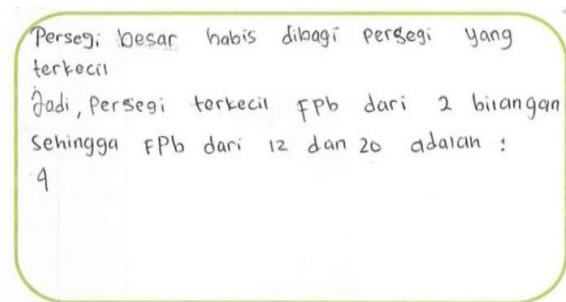 Persegi besar habis dibagi persegi yang
terkecil
Jadi, Persegi terkecil FPb dari 2 bilangan
Sehingga FPb dari 12 dan 20 adalah :
4